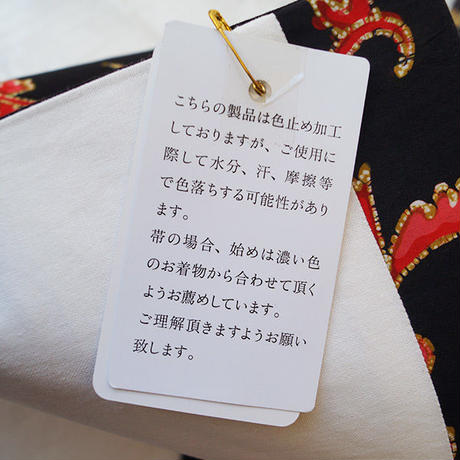 こちらの製品は色止め加工
しておりますが、ご使用に
際して水分、汗、摩擦等
で色落ちする可能性があり
ます。
帯の場合、始めは濃い色
のお着物から合わせて頂く
ようお薦めしています。
ご理解頂きますようお願い
致します。